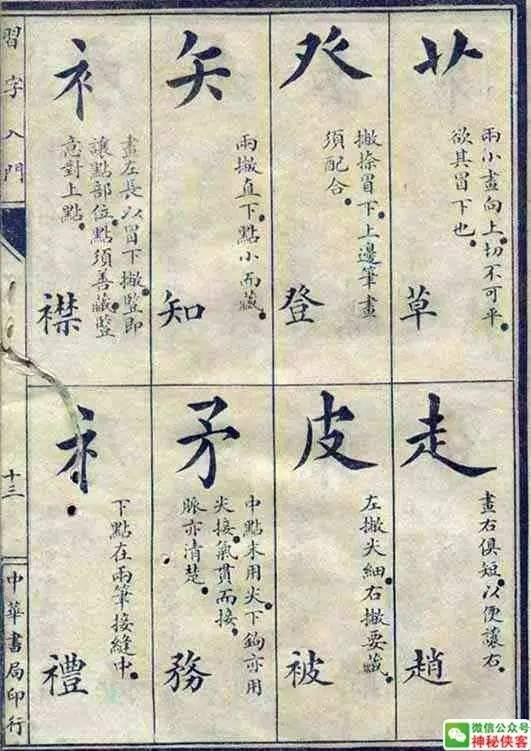 艹
兩小畫向上切不可平
欲其冒下也
草
癶
撇捺冒下上邊筆畫
須配合
登
矢
兩撇直下點小而藏
知
衤
畫左長以冒下撇豎即
讓點部位點須善藏豎
意對上點
襟
走
畫右俱短以便讓右
趙
皮
左撇尖細右撇要藏
被
矛
中點末用尖下鉤亦用
尖接氣貫而接
脈亦清楚
務
礻
下點在兩筆接縫中
禮
習字入門
十三
中華書局印行
微信公众号
神秘侠客